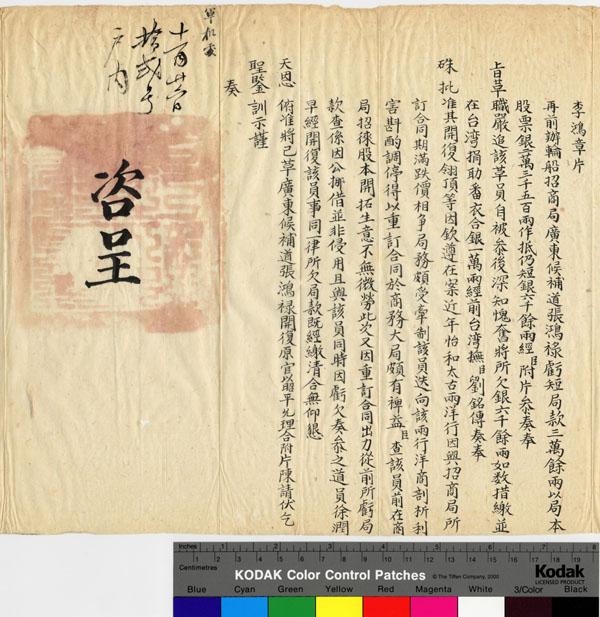 李鴻章片
再前辦輪船招商局廣東候補道張鴻祿虧短局款三萬餘兩以局本
股票銀二萬三千五百兩作抵仍短銀六千餘兩經臣附片叅奏奉
旨革職嚴追該革員自被叅後深知愧奮將所欠銀六千餘兩如數措繳並
在台湾捐助番衣合銀一萬兩經前台湾撫臣劉銘傳奏奉
硃批准其開復翎頂等因欽遵在案近年怡和太古兩洋行因與招商局所
訂合同期滿跌價相爭局務頗受牽制該員迭向該兩行洋商剖析利
害斟酌調停得以重訂合同於商務大局頗有裨益臣查該員前在商
局招徠股本開拓生意不無微勞此次又因重訂合同出力從前所虧局
款查係因公挪借並非侵用且與該員同時因虧欠奏叅之道員徐潤
早經開復該員事同一律所欠局款既經繳清合無仰懇
天恩俯准將已革廣東候補道張鴻祿開復原官以昭平允理合附片陳請伏乞
聖鑒訓示謹
奏
軍机處
十一月廿一日
拾弍号
户內
咨呈
Inches 1 2 3 4 5 6 7 8
Centimetres 1 2 3 4 5 6 7 8 9 10 11 12 13 14 15 16 17 18 19
KODAK Color Control Patches © The Tiffen Company, 2000 Kodak LICENSED PRODUCT
Blue Cyan Green Yellow Red Magenta White 3/Color Black